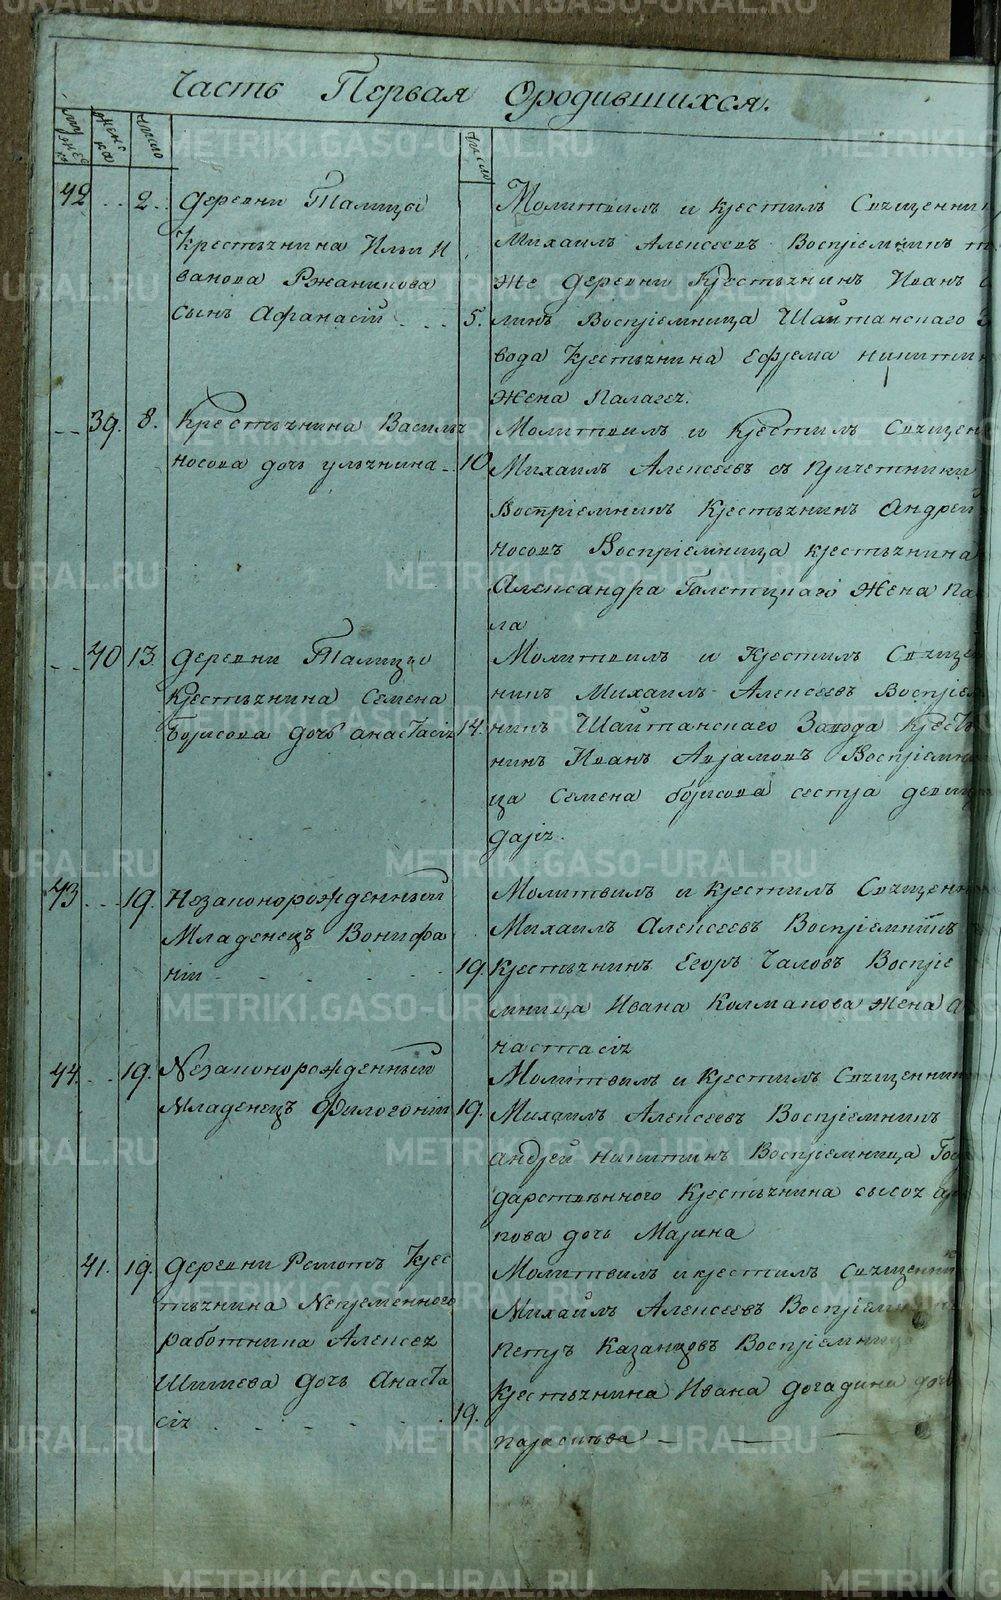 Часть Первая Ородившихся.
мужеска
женска
число
число
42 .. 2. деревни Талицы
Крестьянина Ильи И
ванова Ржаникова
сынъ Афанасій . . . 5.
Молитвилъ и крестилъ Священни
Михаилъ Алексеевъ Воспріемникъ т
же деревни Крестьянинъ Иванъ
линъ Воспріемница Шайтанскаго З
вода крестьянина Ефрема никитин
Жена Палагея.
39. 8. Крестьянина Василья
носова дочь ульянина .. 10
Молитвилъ и крестилъ Священ
Михаилъ Алексеевъ съ причетники
Воспріемникъ Крестьянинъ Андрей
носовъ Воспріемница крестьянина
Александра Галетцкаго жена Па
ла
40 13. деревни Талицы
Крестьянина Семена
Борисова дочь анастасія 14.
Молитвилъ и крестилъ Свяще
никъ Михаилъ Алексеевъ Воспріем
никъ Шайтанскаго Завода Кресть
нинъ Иванъ Аврамовъ Воспріемн
ца Семена борисова сестра девица
дарія.
43 ... 19. Незаконорожденный
Младенецъ Вонифа
тій - - - - 19.
Молитвилъ и крестилъ Священн
Михаилъ Алексеевъ Воспріемникъ
Крестьянинъ Егоръ Чаловъ Воспріе
мница Ивана Колмакова жена А
настасія
44. .. 19. Незаконорожденный
Младенецъ Филогоній 19.
Молитвилъ и крестилъ Священник
Михаилъ Алексеевъ Воспріемникъ
Андрей никитинъ Воспріемница Госу
дарственного Крестьянина сысоя
пова дочь Марина
41. 19. деревни Ремотъ Крес
тьянина Непременного
работника Алексея
Шишева дочь Анаста
сія . . - - - . 19.
Молитвилъ и крестилъ Священни
Михаилъ Алексеевъ Воспріемникъ
петръ Казанцовъ Воспріемница
Крестьянина Ивана догадина дочь
парасковья
METRIKI.GASO-URAL.RU